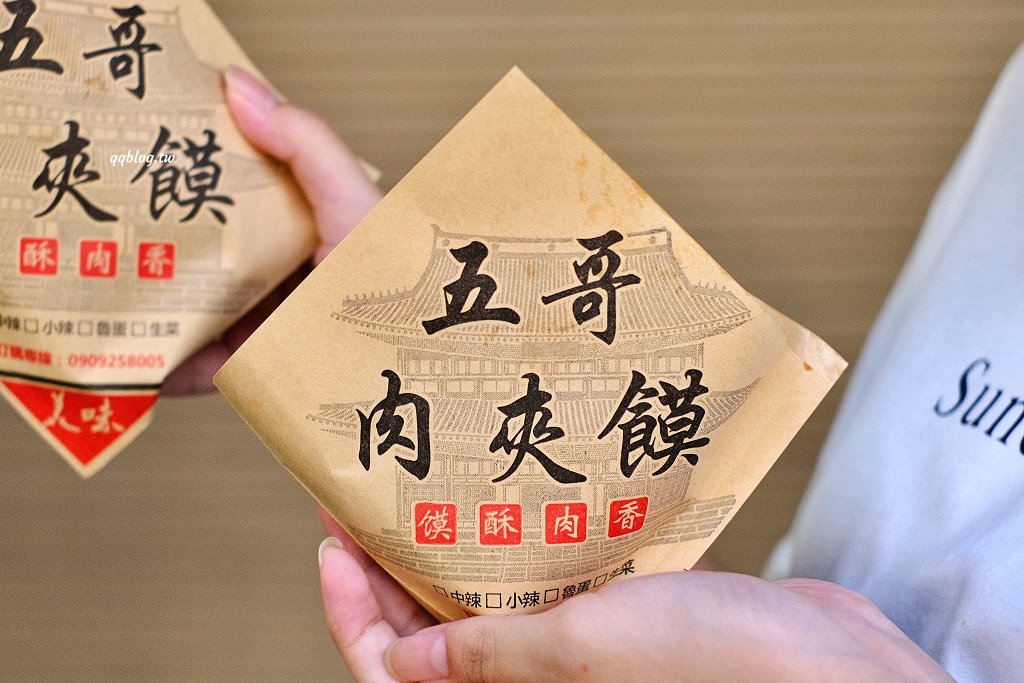 五哥
夾饃
酥肉香
中辣□小辣□魯蛋□生菜
訂購專線：0909258005
美味
qqblog.tw
五哥
肉夾饃
饃酥肉香
□中辣□小辣□魯蛋□生菜